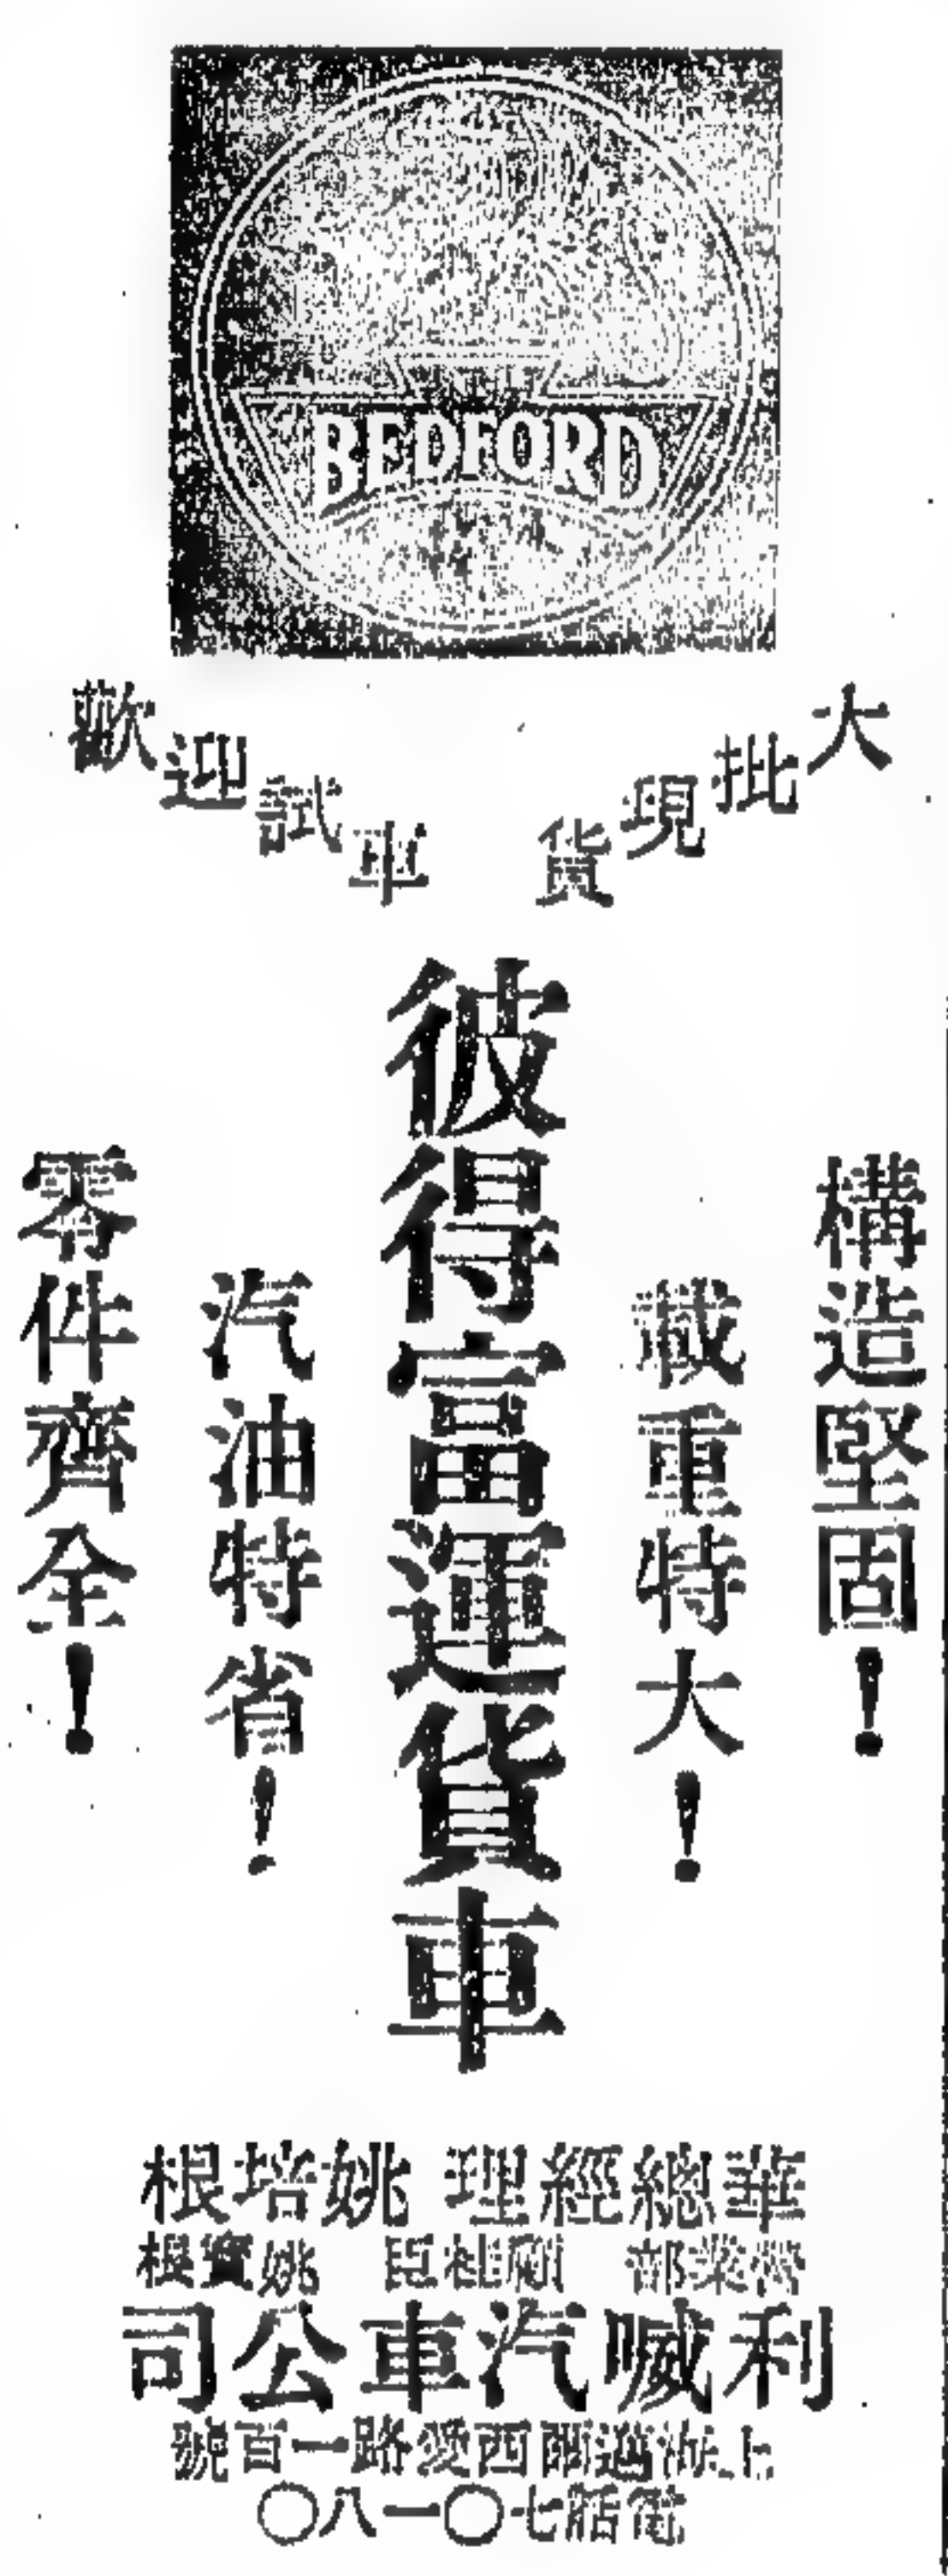 BEDFORD
大批現貨
歡迎試車
構造堅固！
載重特大！
彼得富運貨車
汽油特省！
零件齊全！
華總經理 姚培根
營業部 顧桂臣 姚寶根
利喊汽車公司
上海邁爾西愛路一百號
電話七〇一八〇